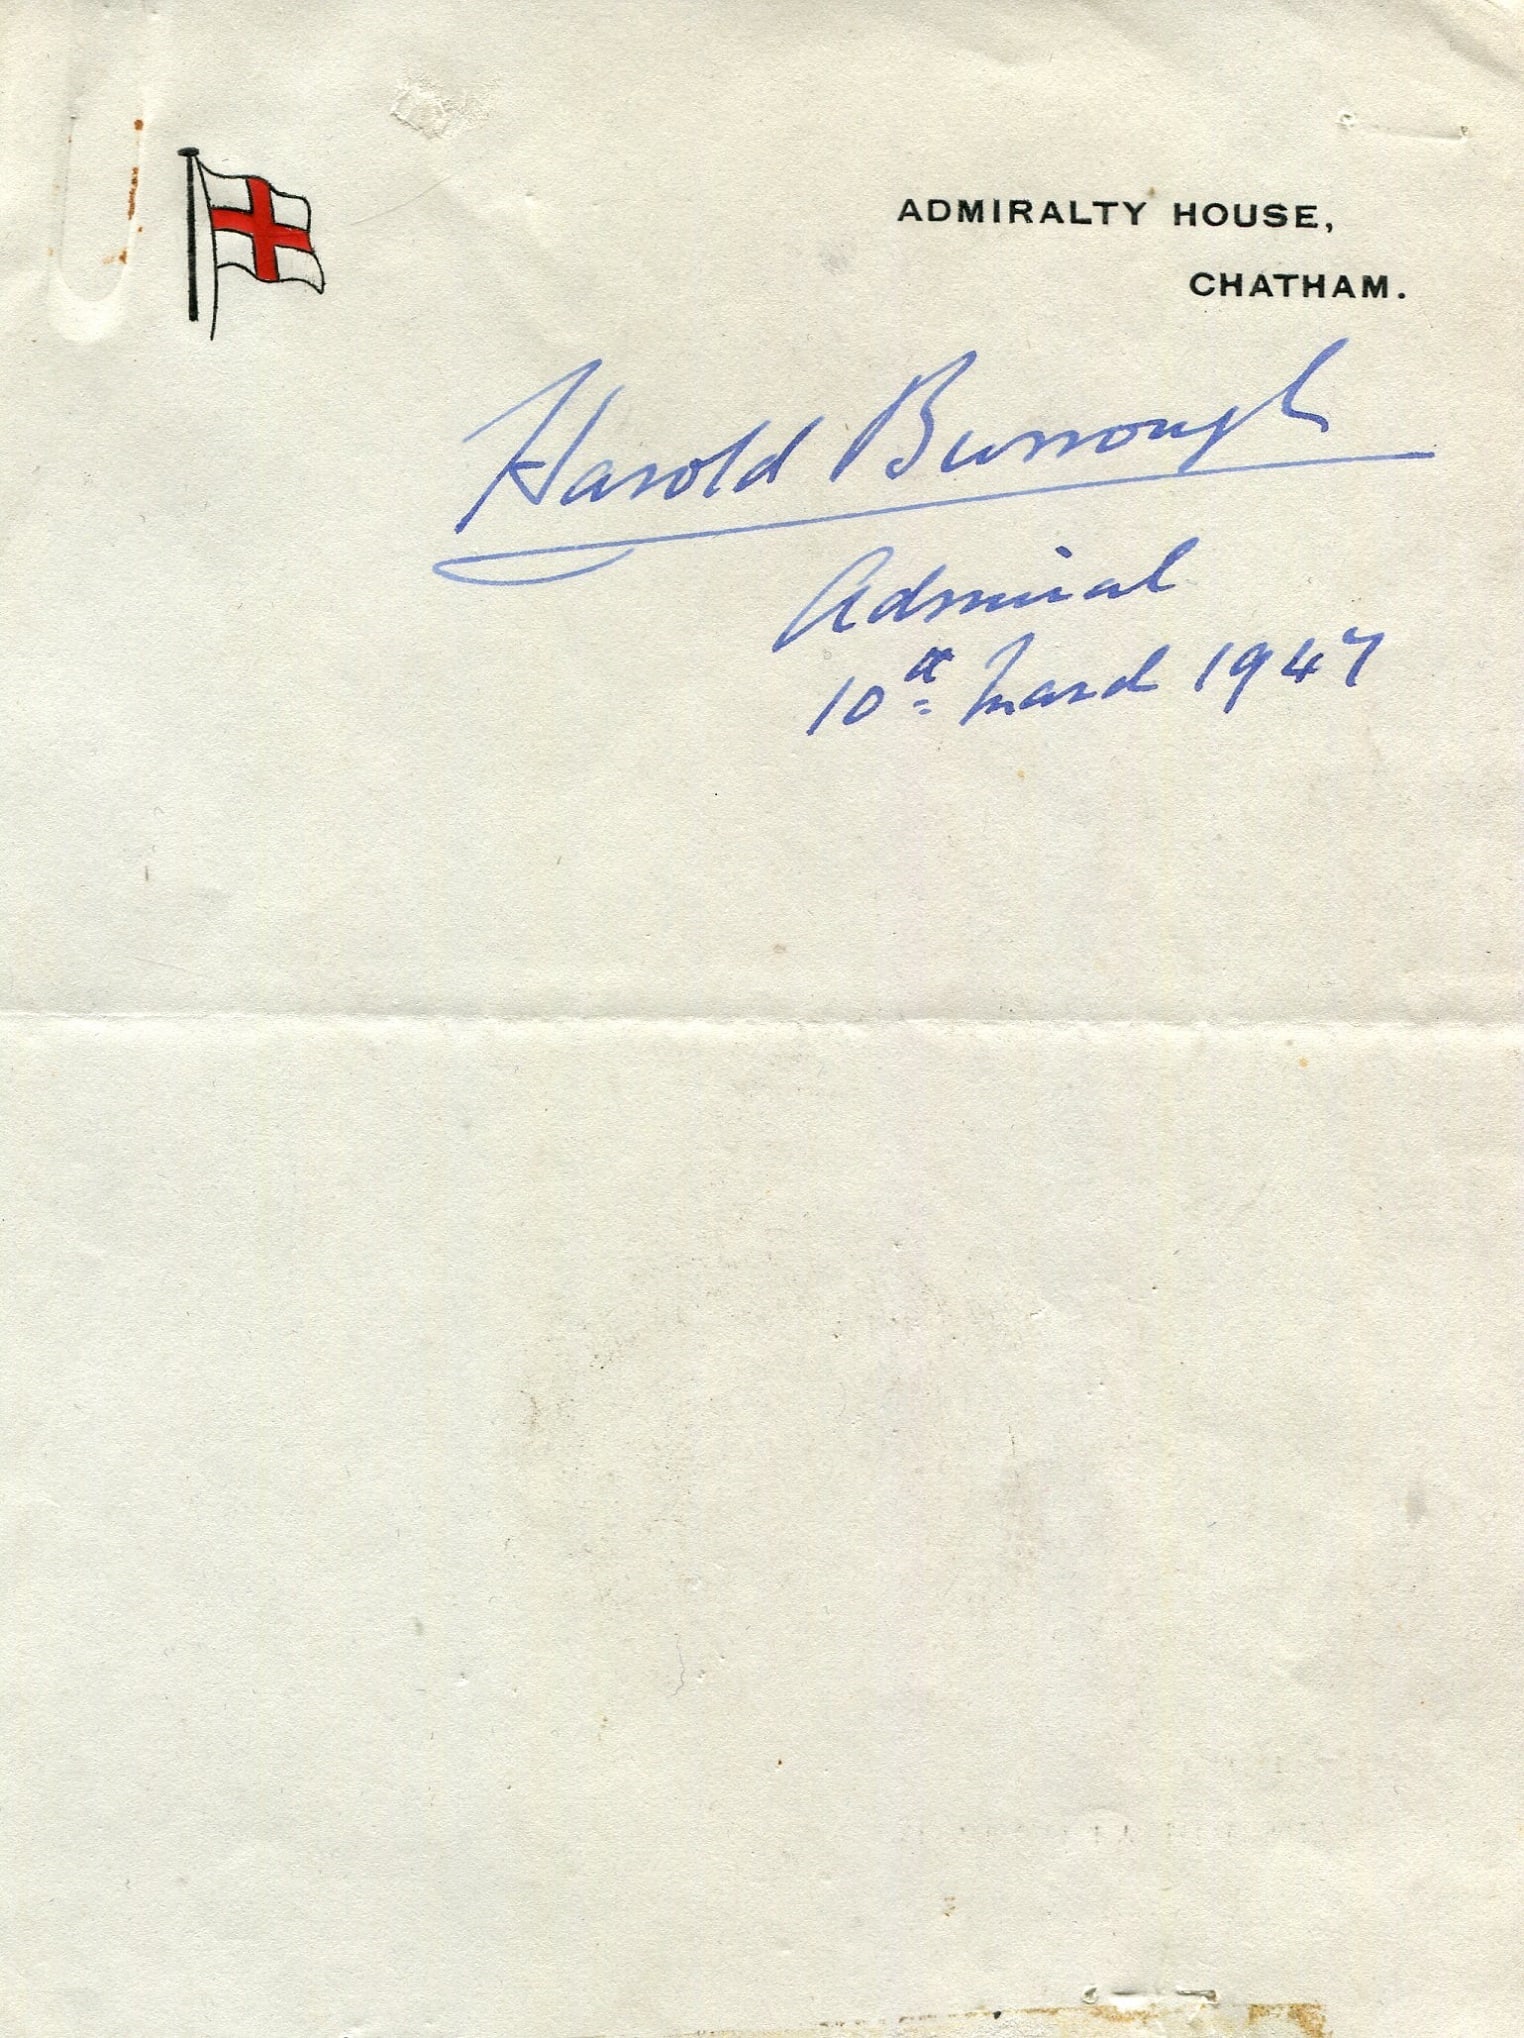 ADMIRALTY HOUSE,
CHATHAM.
Harold Burrough
Admiral
10th March 1947